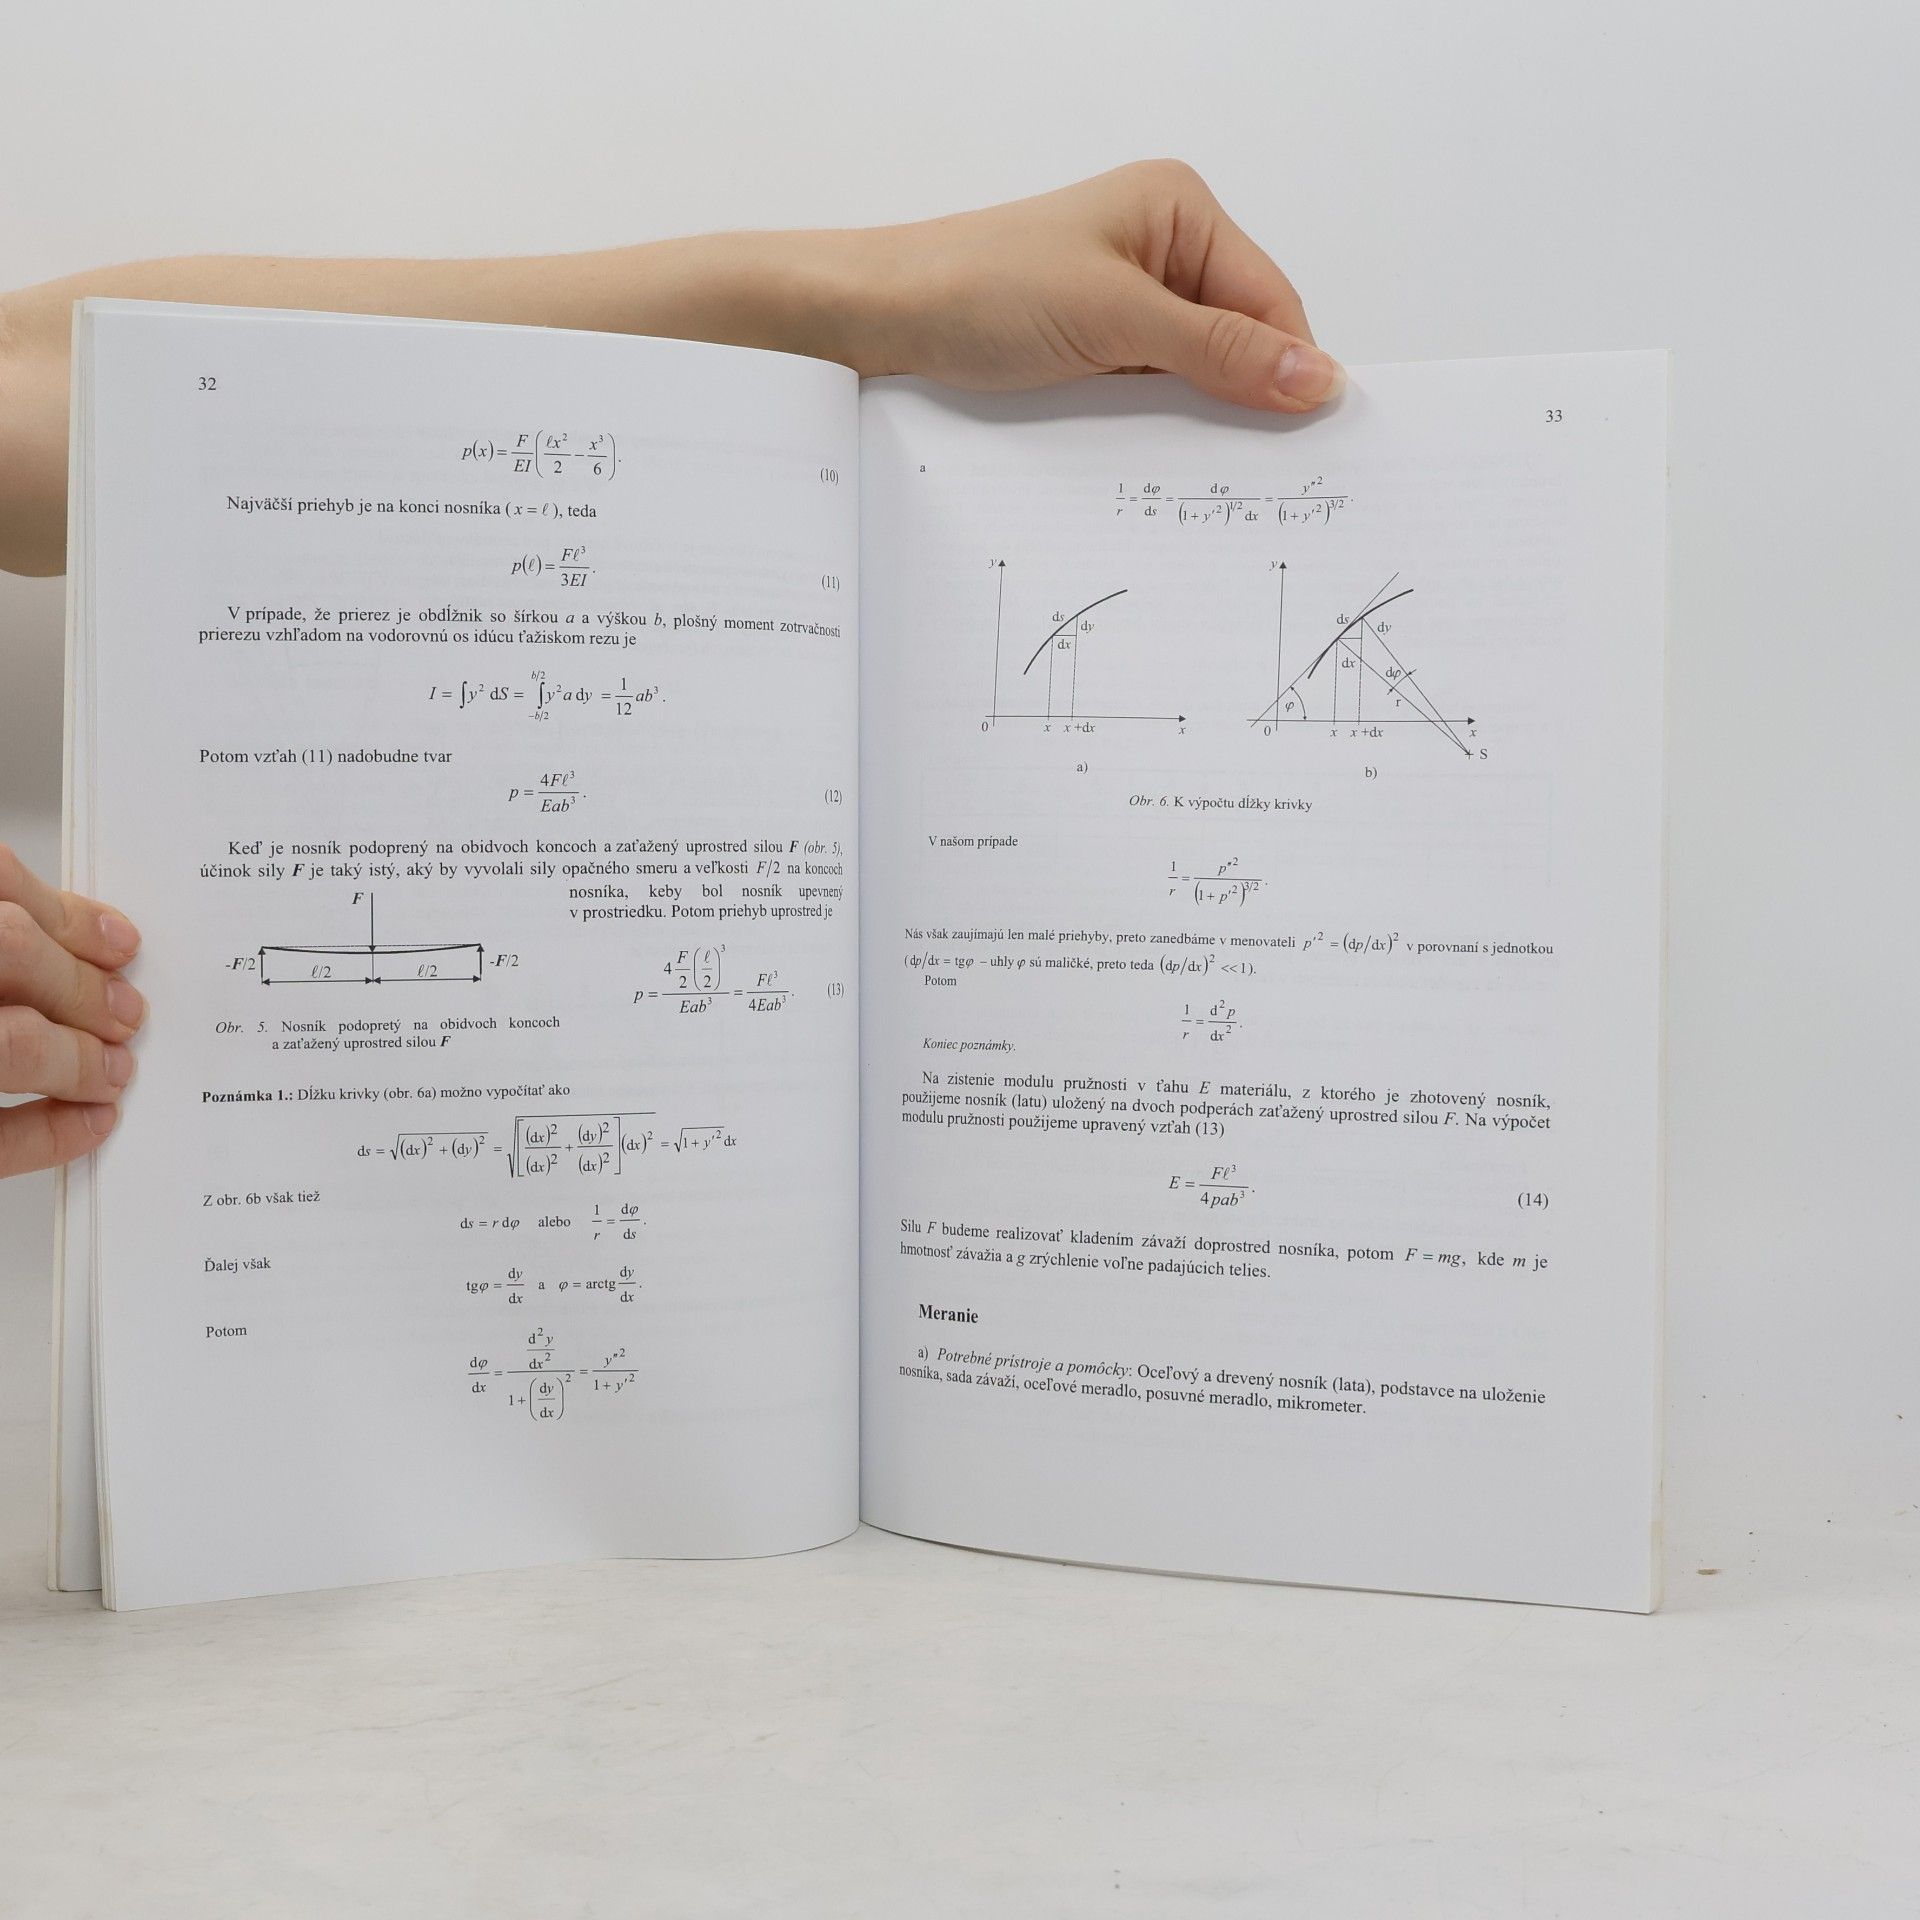 32
p(x) = F/EI (ℓx²/2 − x³/6). (10)
Najväčší priehyb je na konci nosníka ( x = ℓ ), teda
p(ℓ) = Fℓ³/3EI. (11)
V prípade, že prierez je obdĺžnik so šírkou a a výškou b, plošný moment zotrvačnosti
prierezu vzhľadom na vodorovnú os idúcu ťažiskom rezu je
I = ∫y² dS = ∫_{-b/2}^{b/2} y² a dy = 1/12 ab³.
Potom vzťah (11) nadobudne tvar
p = 4Fℓ³/Eab³. (12)
Keď je nosník podoprený na obidvoch koncoch a zaťažený uprostred silou F (obr. 5),
účinok sily F je taký istý, aký by vyvolali sily opačného smeru a veľkosti F/2 na koncoch
nosníka, keby bol nosník upevnený
v prostriedku. Potom priehyb uprostred je
F
-F/2 ℓ/2 ℓ/2 -F/2
p = 4 F/2 (ℓ/2)³ / Eab³ = Fℓ³/4Eab³. (13)
Obr. 5. Nosník podopretý na obidvoch koncoch
a zaťažený uprostred silou F
Poznámka 1.: Dĺžku krivky (obr. 6a) možno vypočítať ako
ds = √((dx)² + (dy)²) = √([(dx)²/(dx)² + (dy)²/(dx)²](dx)²) = √(1 + y′²) dx
Z obr. 6b však tiež
ds = r dφ alebo 1/r = dφ/ds.
Ďalej však
tgφ = dy/dx a φ = arctg dy/dx.
Potom
dφ/dx = (d²y/dx²) / (1 + (dy/dx)²) = y″²/(1 + y′²)
33
a
1/r = dφ/ds = dφ/((1 + y′²)^{1/2} dx) = y″²/(1 + y′²)^{3/2}.
y ds dy dx 0 x x+dx x
a)
y ds dy dx dφ r φ 0 x x+dx x S
b)
Obr. 6. K výpočtu dĺžky krivky
V našom prípade
1/r = p″²/(1 + p′²)^{3/2}.
Nás však zaujímajú len malé priehyby, preto zanedbáme v menovateli p′² = (dp/dx)² v porovnaní s jednotkou
(dp/dx = tgφ – uhly φ sú maličké, preto teda (dp/dx)² << 1).
Potom
1/r = d²p/dx².
Koniec poznámky.
Na zistenie modulu pružnosti v ťahu E materiálu, z ktorého je zhotovený nosník,
použijeme nosník (latu) uložený na dvoch podperách zaťažený uprostred silou F. Na výpočet
modulu pružnosti použijeme upravený vzťah (13)
E = Fℓ³/4pab³. (14)
Silu F budeme realizovať kladením závaží doprostred nosníka, potom F = mg, kde m je
hmotnosť závažia a g zrýchlenie voľne padajúcich telies.
Meranie
a) Potrebné prístroje a pomôcky: Oceľový a drevený nosník (lata), podstavce na uloženie
nosníka, sada závaží, oceľové meradlo, posuvné meradlo, mikrometer.